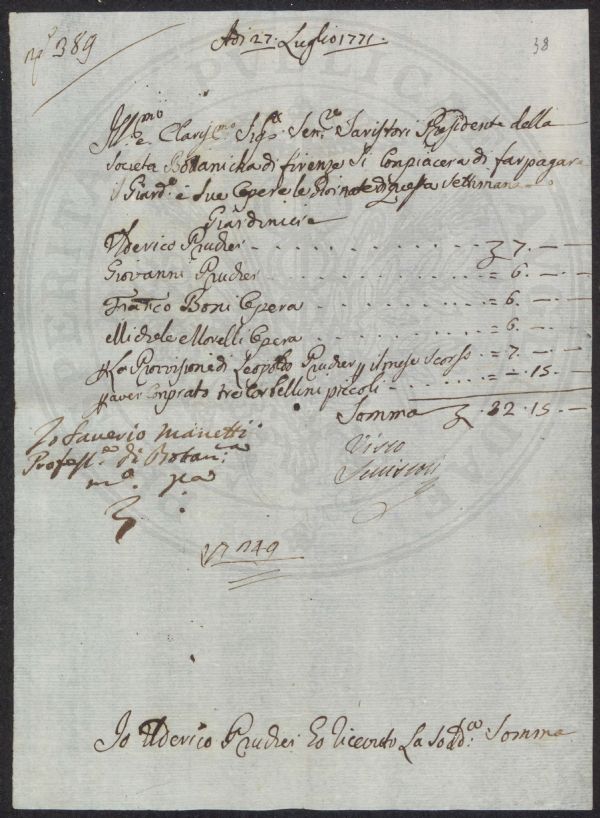 n.° 389
Adì 27. Luglio 1771.
38
Ill.mo e Claris.mo Sig.re Sen.re Saristori Presidente della
Societa Bottanicha di firenze Si Conpiacera di far pagare
il Giard.e e Sue Opere le Giornate di questa Settimana
Giardiniere
Uderico Prucher - - - 7. — —
Giovanni Prucher - - - = 6. — —
Franco Boni Opera - - - = 6. — —
Michele Morelli Opera - - - = 6. — —
La Provisione di Leopoldo Prucher il mese Scorso = 7. — —
aver Conprato tre Corbellini piccoli - - - = — 15. —
Somma 32. 15. —
Io Saverio Manetti
Profess.e di Botan.a
m.o p.a
Visto
n 249
Io Uderico Prucher Ho ricevuto La Sodd.a Somma